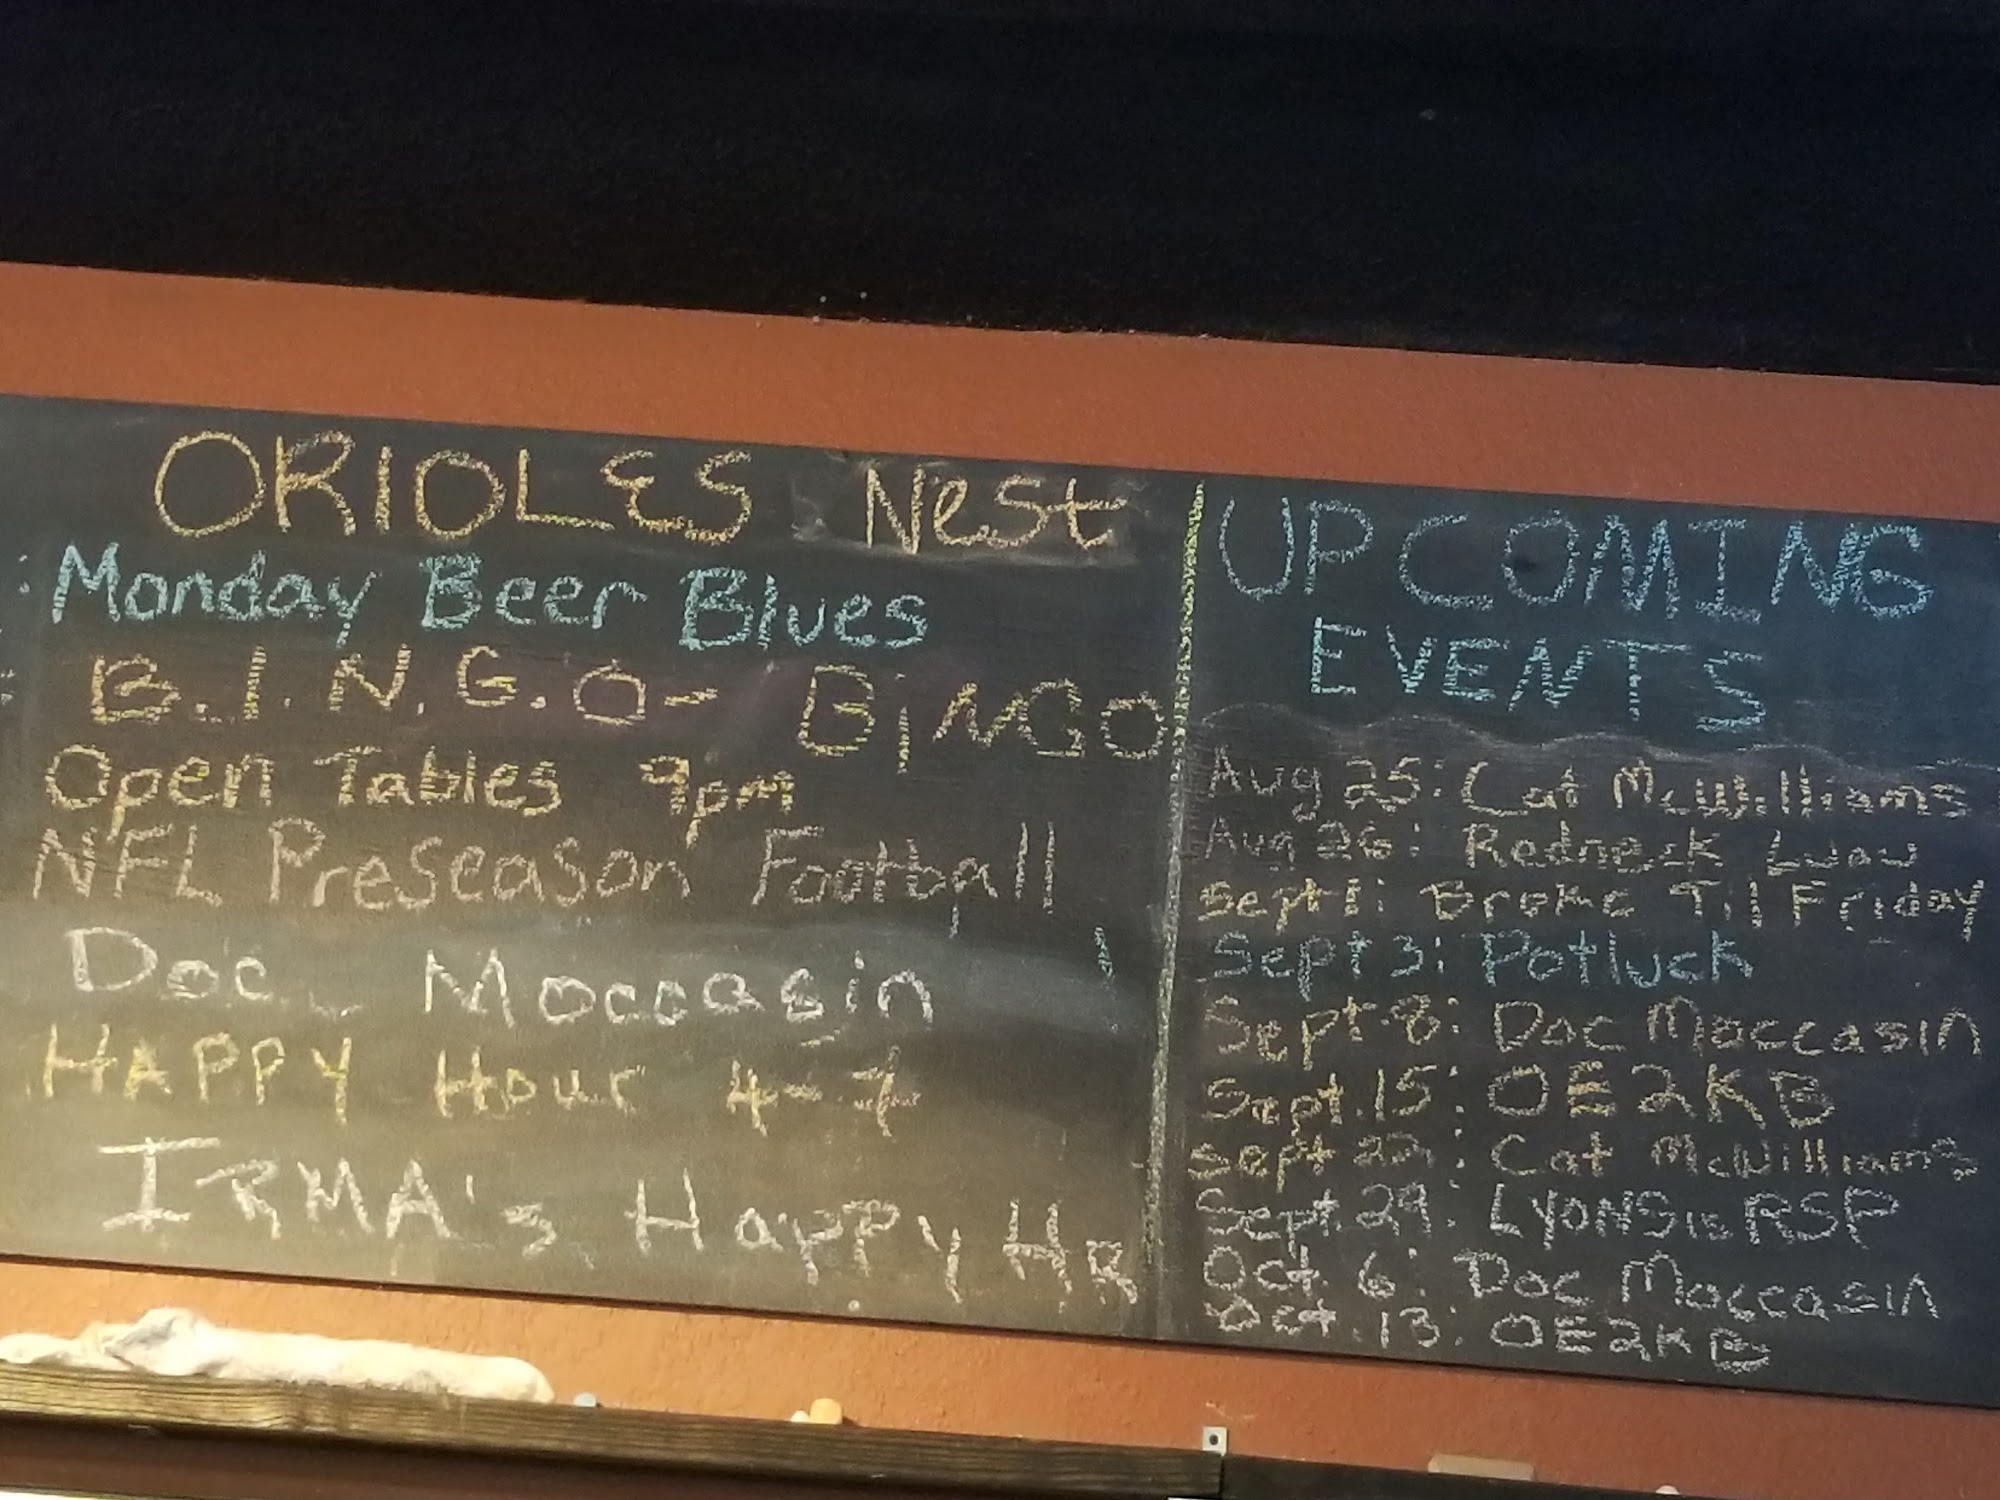 ORIOLES Nest
Monday Beer Blues
B.I.N.G.O- BINGO
Open Tables 9pm
NFL PreSeason Football
Doc Moccasin
HAPPY Hour 4-7
IRMA's HAPPY HR
UPCOMING
EVENTS
Aug 25: Cat McWilliams
Aug 26: Redneck Luau
Sept 1: Broke Til Friday
Sept 3: Potluck
Sept 8: Doc Moccasin
Sept. 15: OE2KB
Sept 22: Cat McWilliams
Sept. 29: LYONS is RSP
Oct 6: Doc Moccasin
Oct. 13: OE2KB